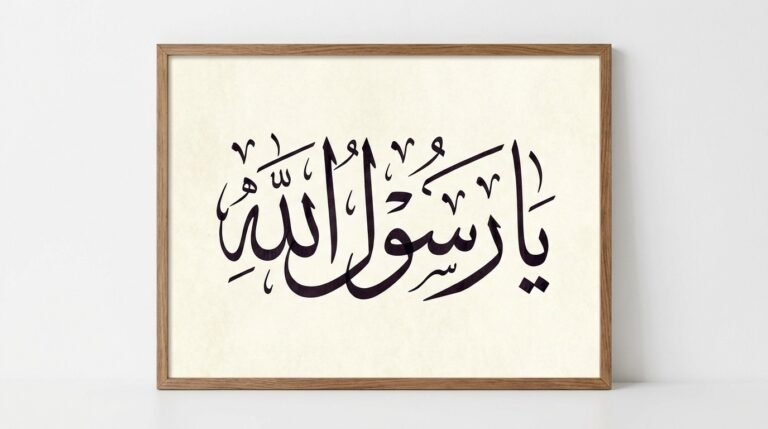 يَا رَسُوْلُ اللّٰهِ